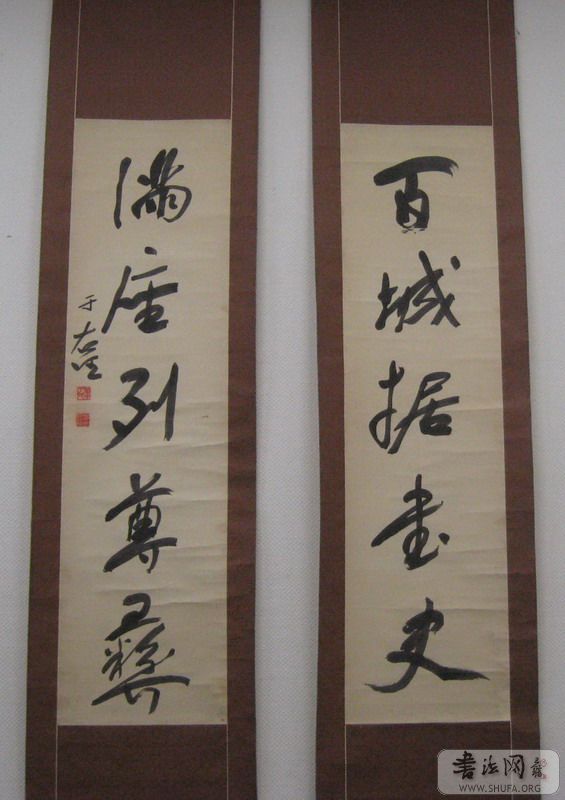 百城据书史
满座列尊彝
于右任
書法网
WWW.SHUFA.ORG